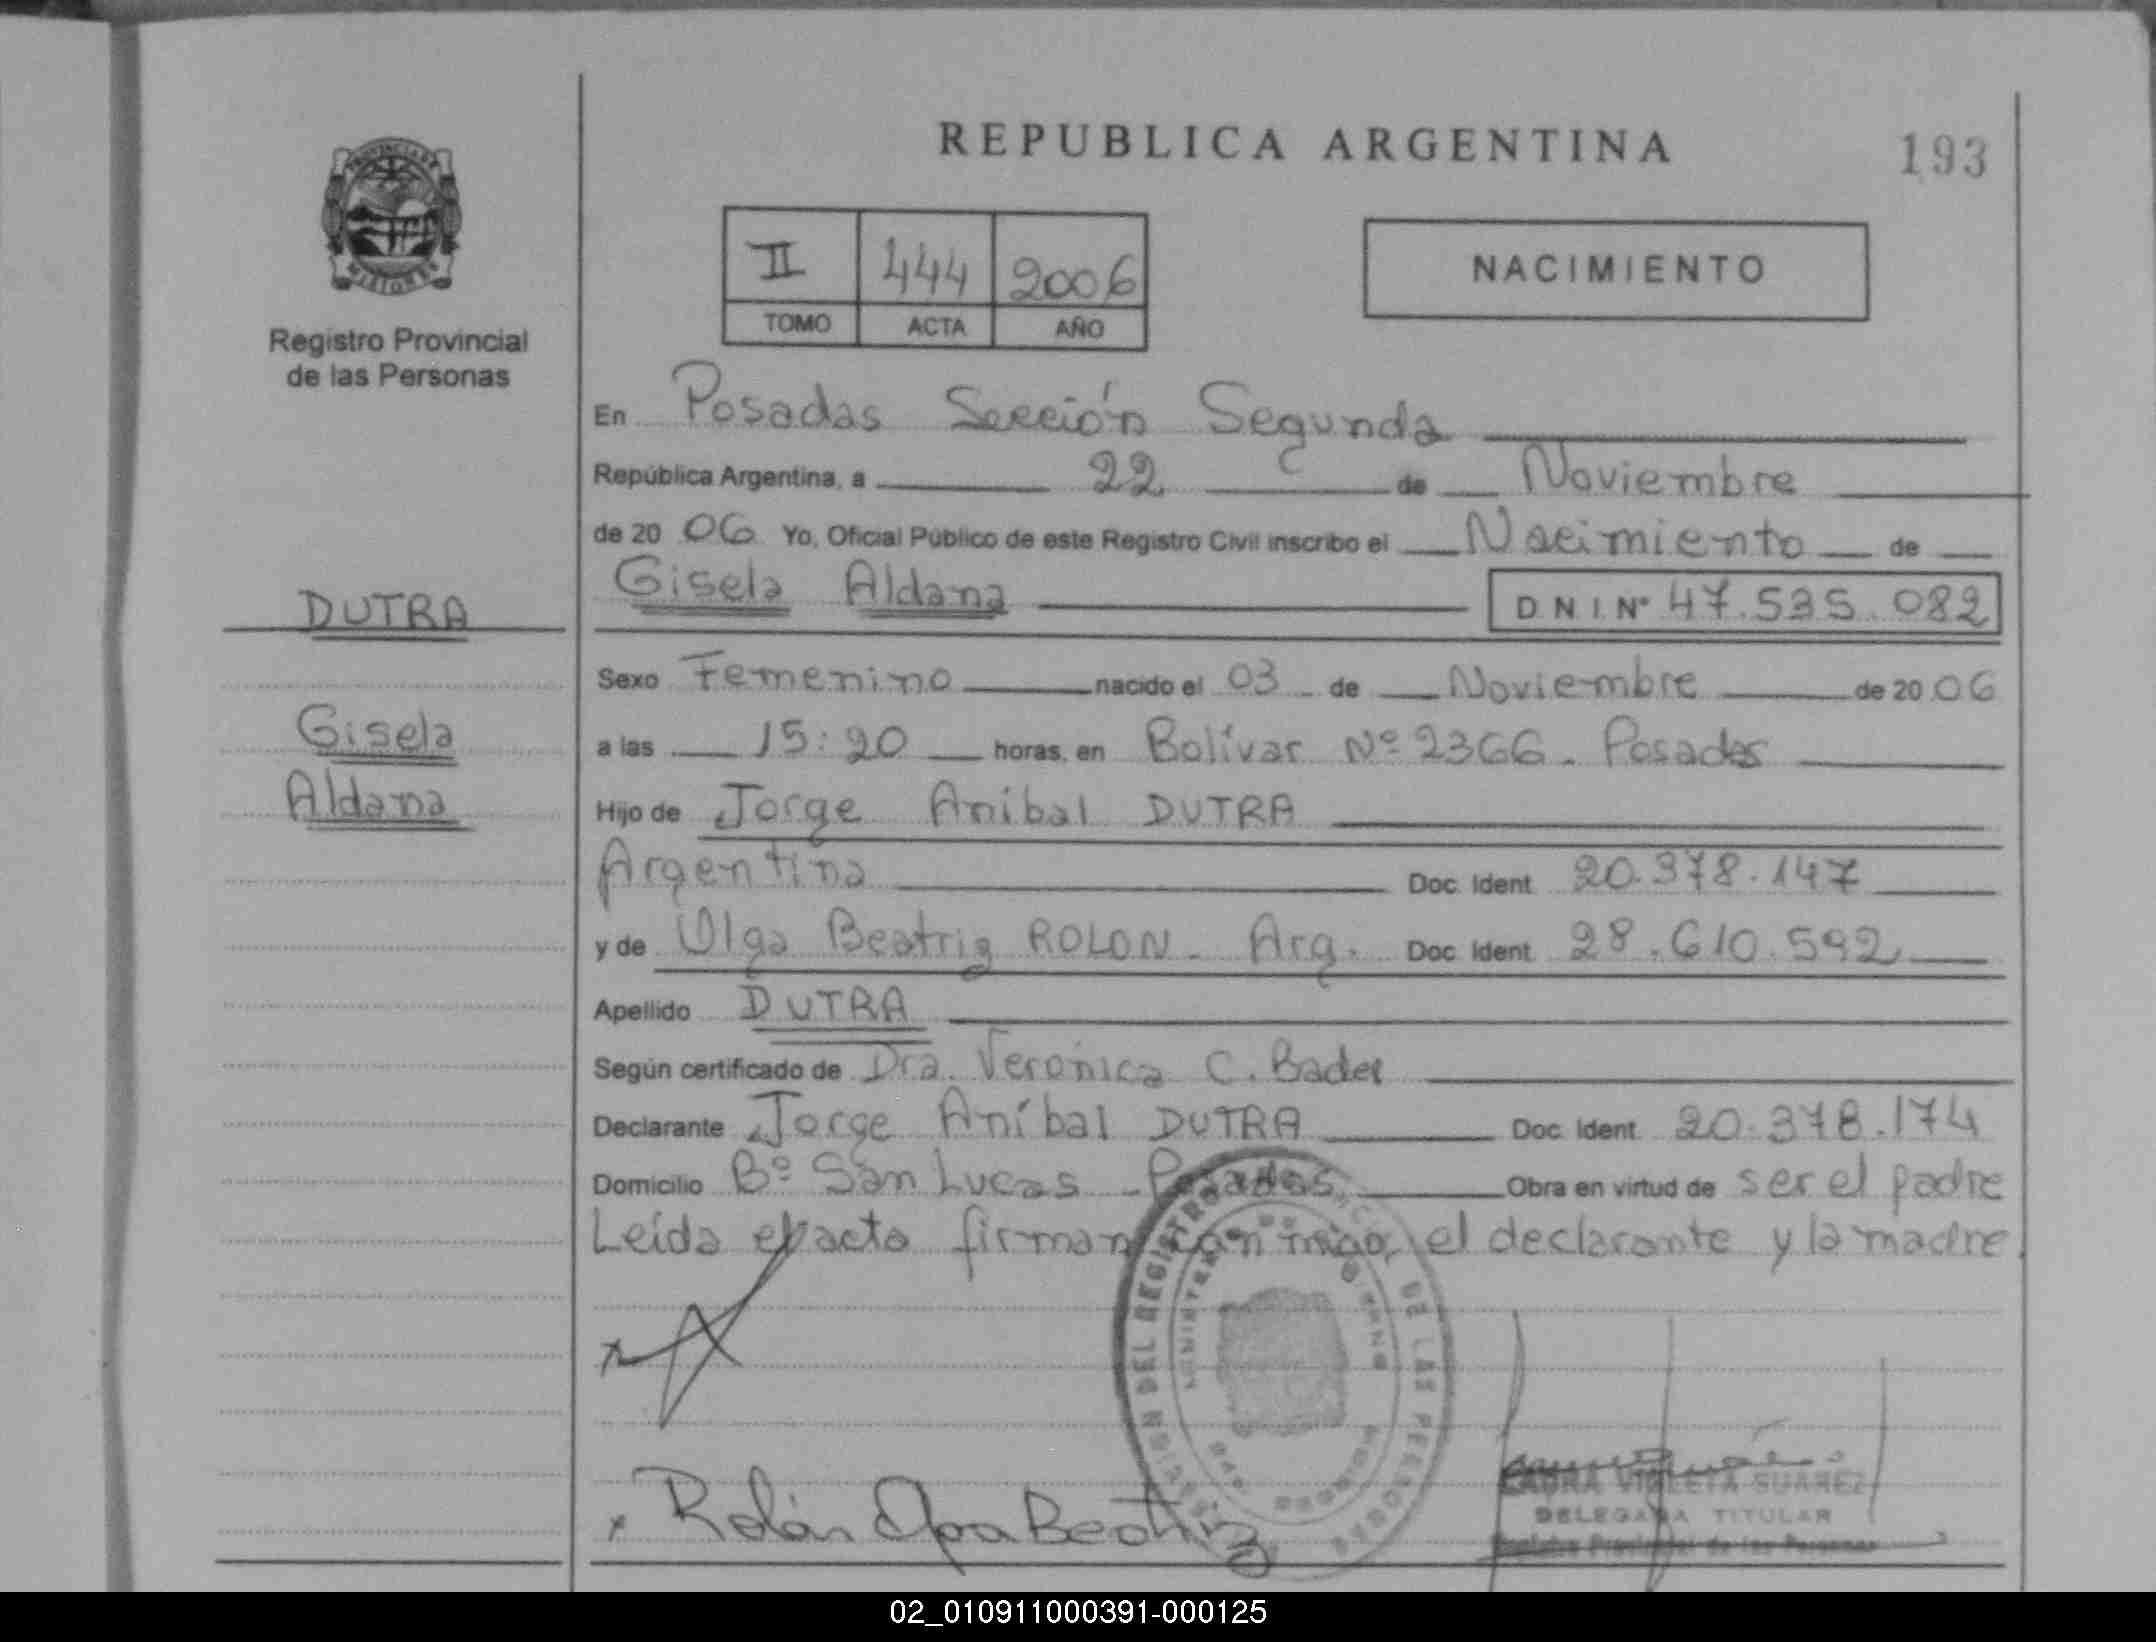 REPUBLICA ARGENTINA
193
PROVINCIA DE
MISIONES
Registro Provincial
de las Personas
II 444 2006
TOMO ACTA AÑO
NACIMIENTO
En Posadas Sección Segunda
República Argentina, a 22 de Noviembre
de 20 06 Yo, Oficial Público de este Registro Civil inscribo el Nacimiento de
Gisela Aldana D N I. Nº 47.535.082
DUTRA
Gisela
Aldana
Sexo Femenino nacido el 03 de Noviembre de 20 06
a las 15:20 horas, en Bolívar Nº 2366. Posadas
Hijo de Jorge Aníbal DUTRA
Argentina Doc. Ident. 20.378.147
y de Olga Beatriz ROLON - Arg. Doc. Ident. 28.610.592
Apellido DUTRA
Según certificado de Dra. Verónica C. Bader
Declarante Jorge Aníbal DUTRA Doc. Ident. 20.378.174
Domicilio Bº San Lucas - Posadas Obra en virtud de ser el padre
Leída el acta firman con migo, el declarante y la madre.
DEL REGISTRO DE LAS PERSONAS
x Rolón Olga Beatriz
LAURA VIOLETA SUAREZ
DELEGADA TITULAR
Registro Provincial de las Personas
02_010911000391-000125